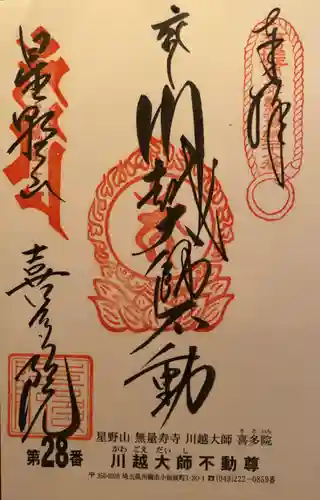 奉拝
交
川越大師不動
星野山
喜多院
星野山 無量寿寺 川越大師 喜多院
きたいん
第28番
かわごえだいし
川越大師不動尊
〒350-0036 埼玉県川越市小仙波町1-20-1 ☎(049)222-0859番